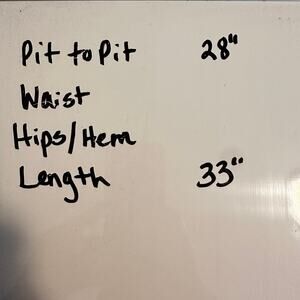 Pit to Pit 28"
Waist
Hips/Hem
Length 33"